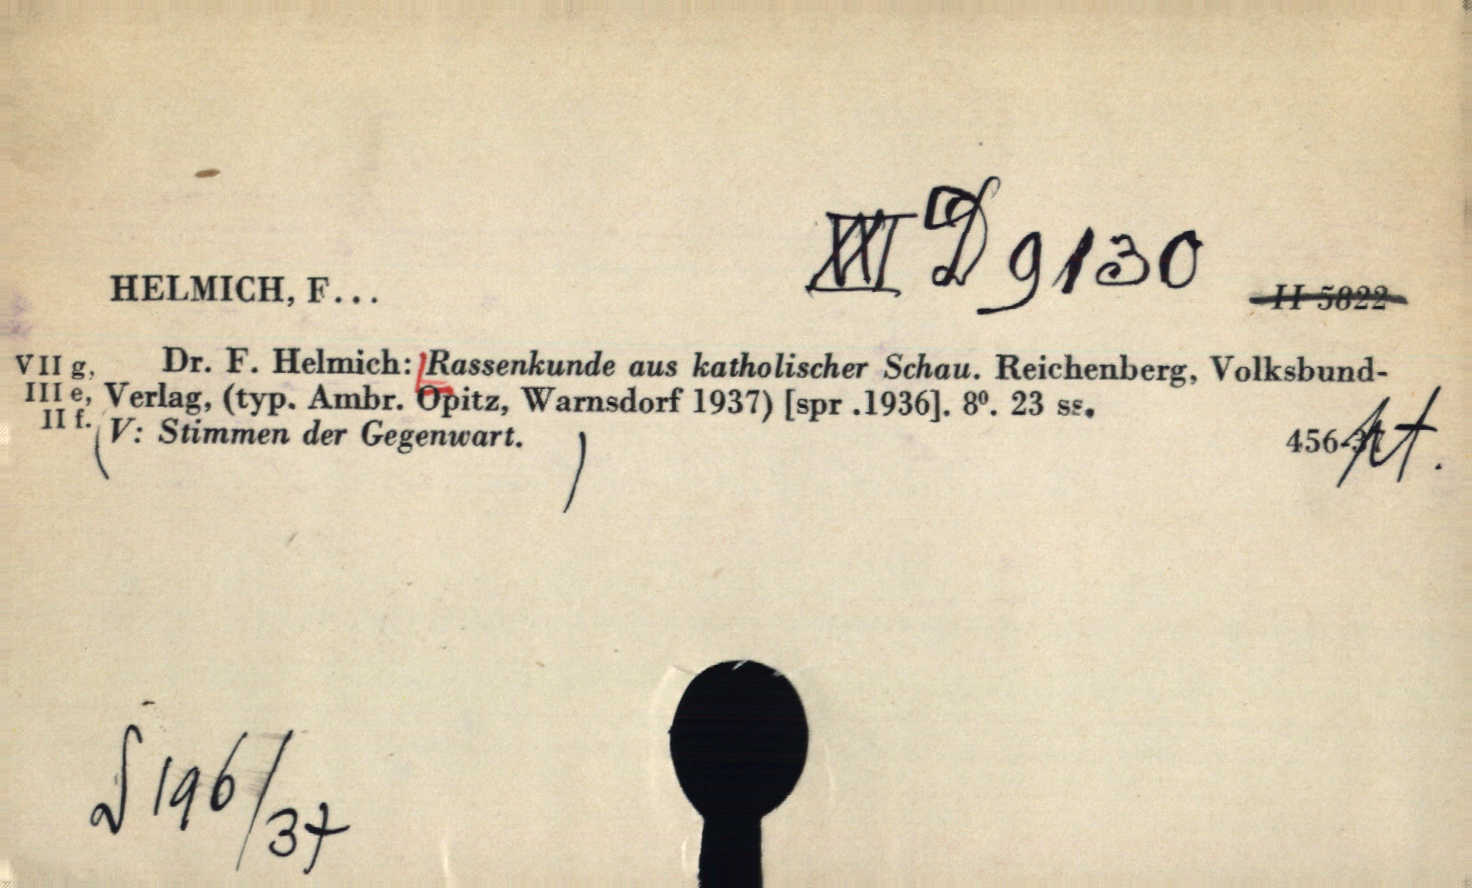 XVI D 9130
HELMICH, F...
H 5822
VII g,
Dr. F. Helmich: Rassenkunde aus katholischer Schau. Reichenberg, Volksbund-
III e,
Verlag, (typ. Ambr. Opitz, Warnsdorf 1937) [spr .1936]. 8⁰. 23 ss.
II f.
(V: Stimmen der Gegenwart. )
456-37
S 196/37